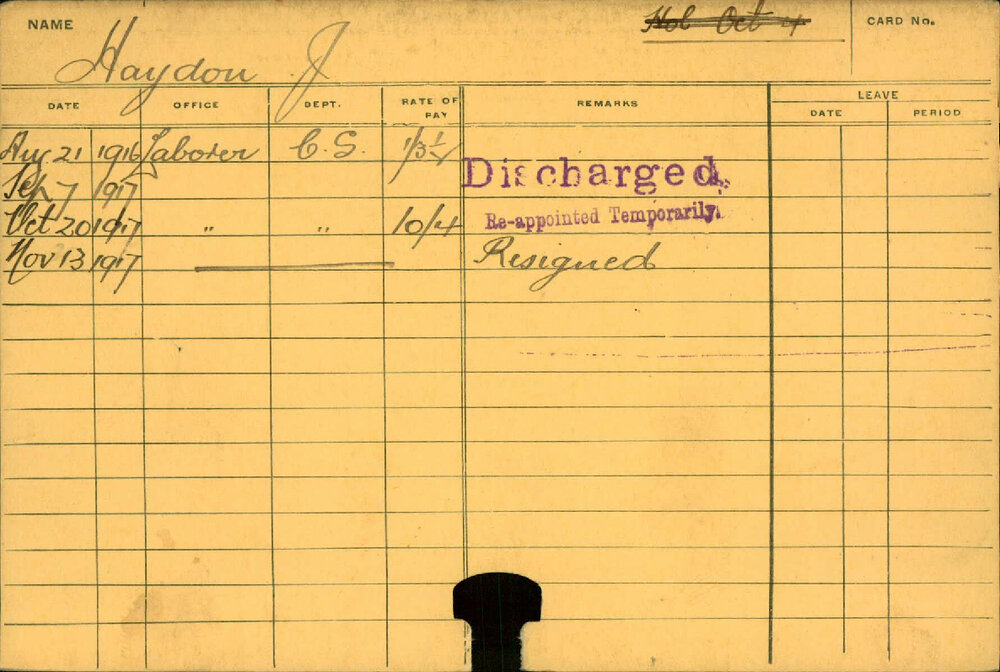 NAME Haydon J Hol Oct 4 CARD No.
DATE OFFICE DEPT. RATE OF PAY REMARKS LEAVE
DATE PERIOD
Aug 21 1916 Laborer C.S.
Discharged.
Sep 7 1917
Re-appointed Temporarily.
Oct 20 1917 " " 10/4
Nov 13 1917 Resigned